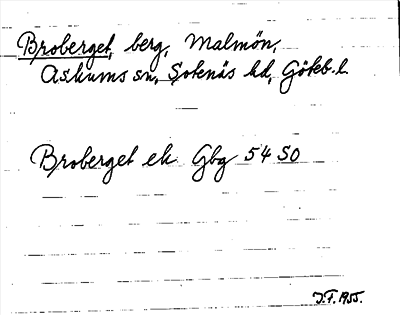 Broberget, berg, Malmön,
Askums sn, Sotenäs hd, Göteb. l.
Broberget ek Gbg 54 SO
J.F. 1955.